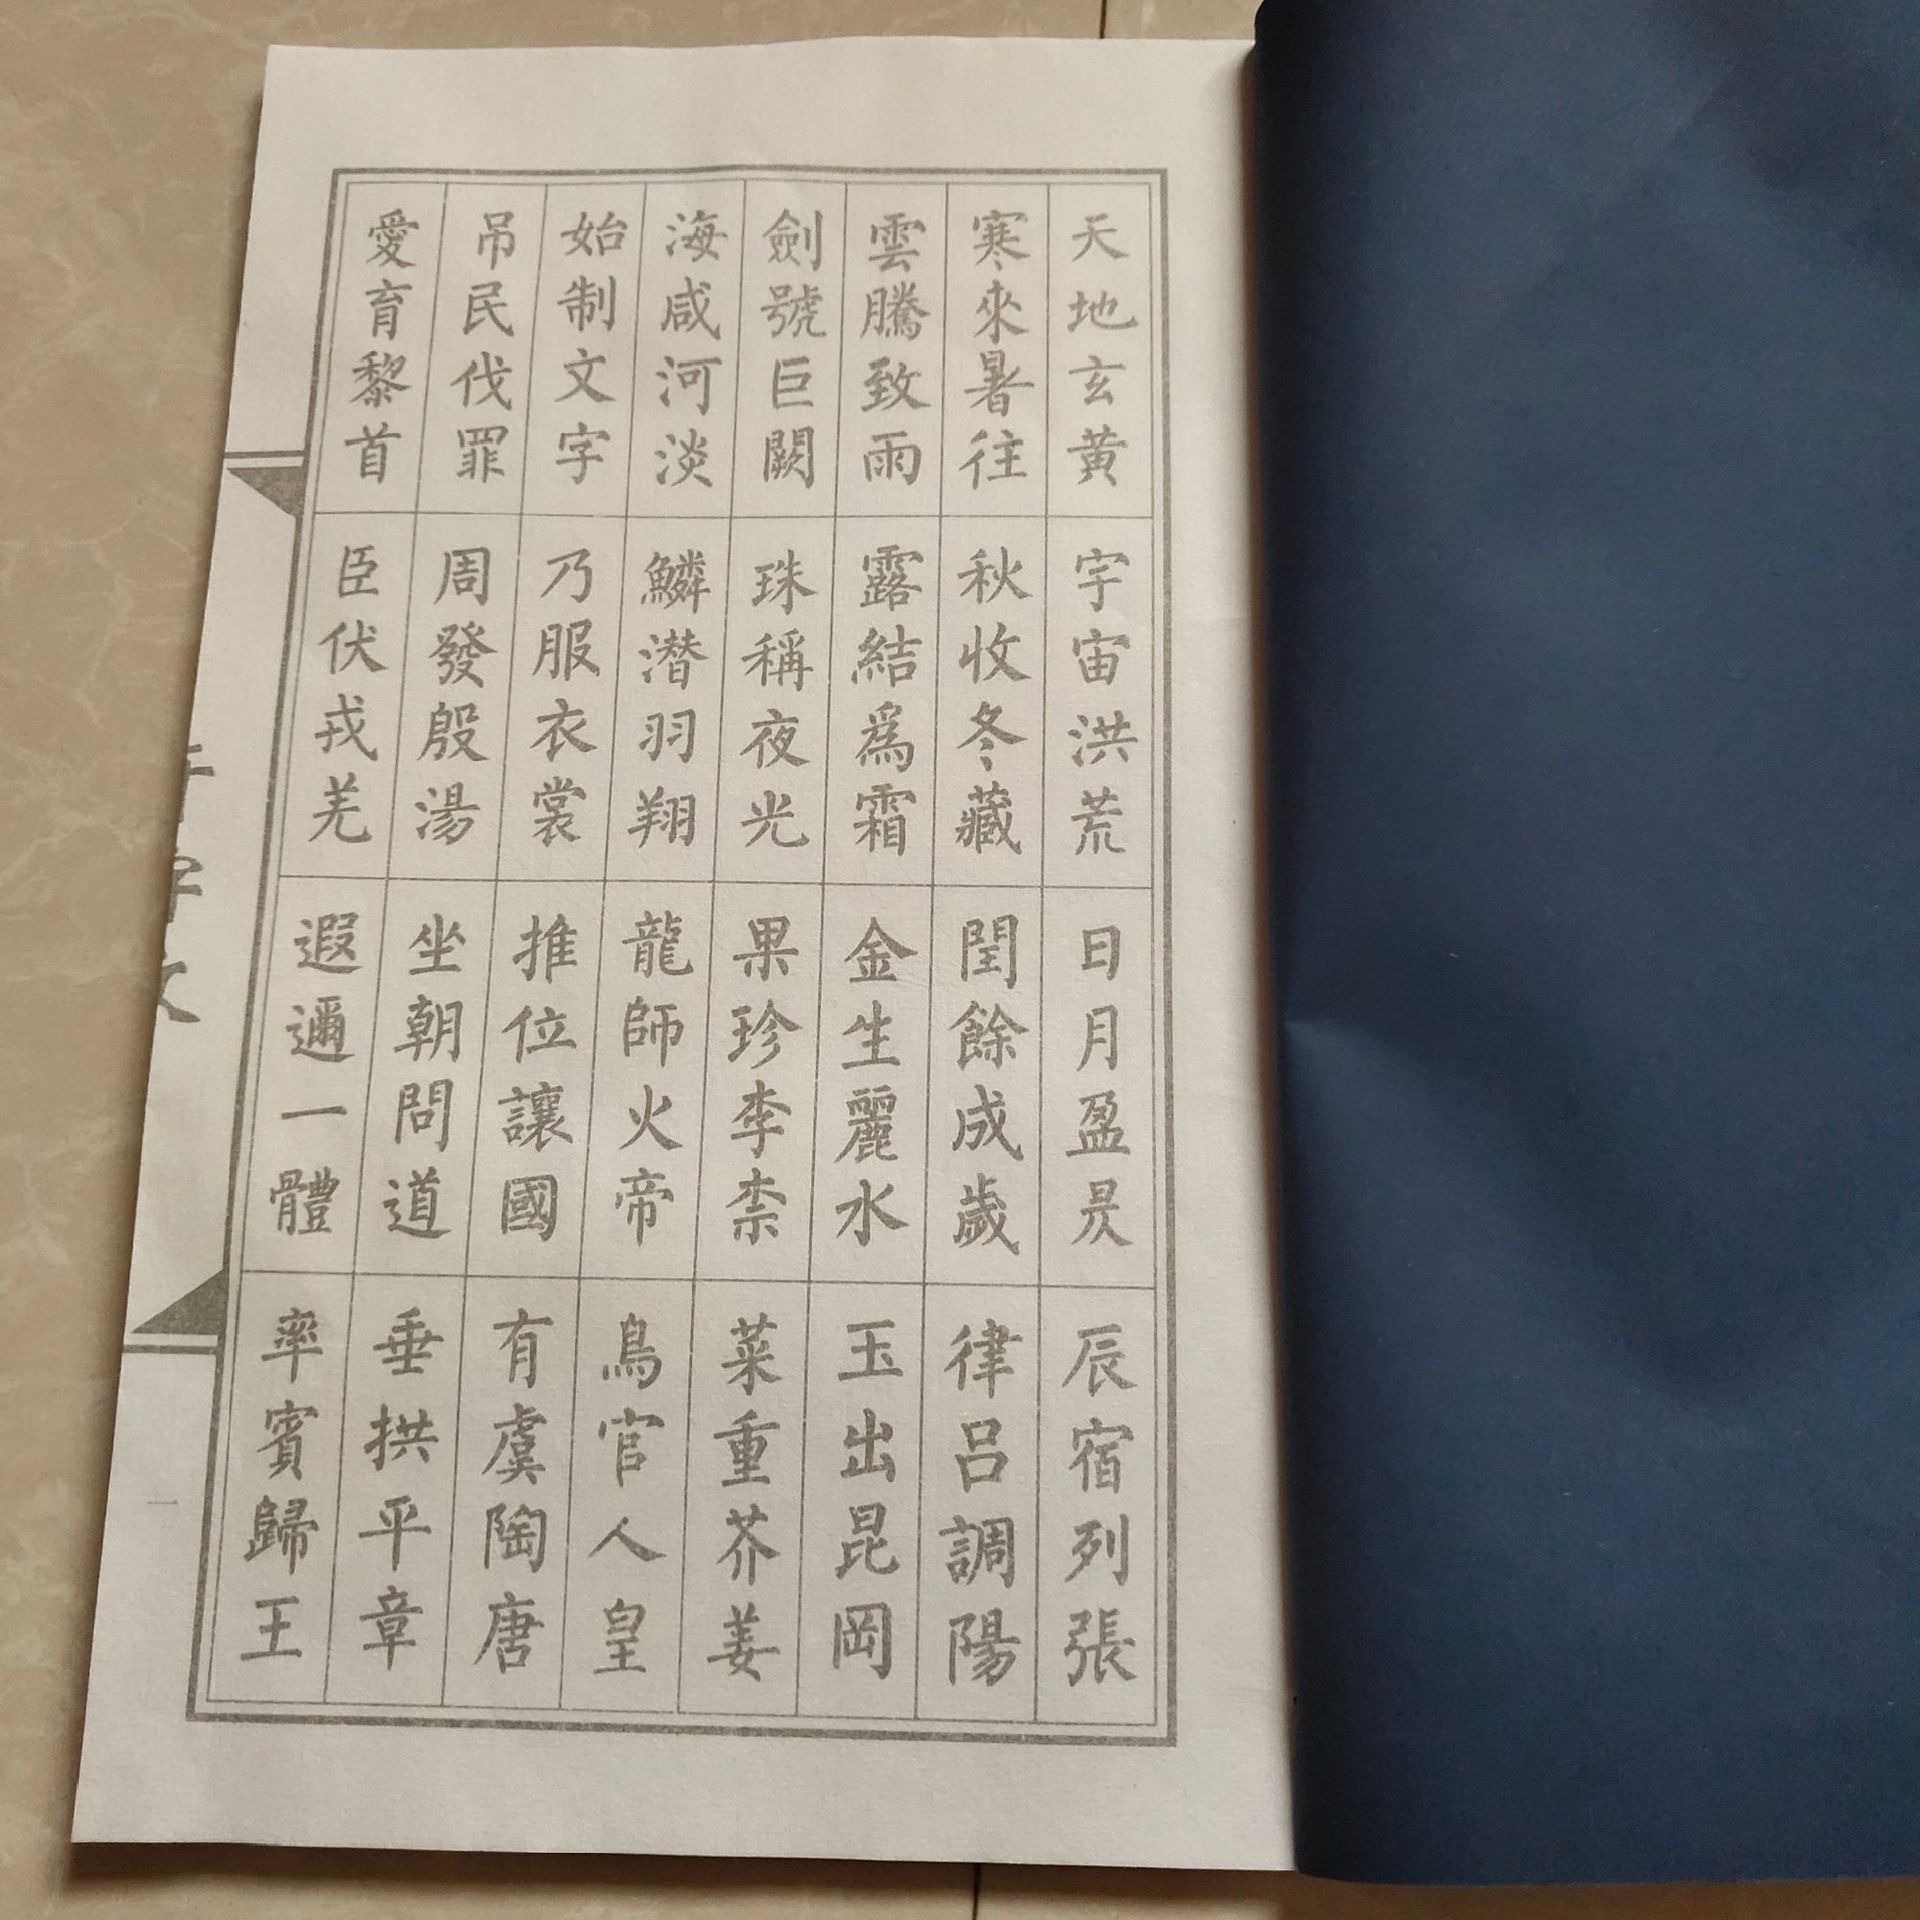 天地玄黄 宇宙洪荒 日月盈昃 辰宿列張
寒來暑往 秋收冬藏 閏餘成歲 律呂調陽
雲騰致雨 露結爲霜 金生麗水 玉出昆岡
劍號巨闕 珠稱夜光 果珍李柰 菜重芥姜
海咸河淡 鱗潛羽翔 龍師火帝 鳥官人皇
始制文字 乃服衣裳 推位讓國 有虞陶唐
吊民伐罪 周發殷湯 坐朝問道 垂拱平章
愛育黎首 臣伏戎羌 遐邇一體 率賓歸王
千字文
一